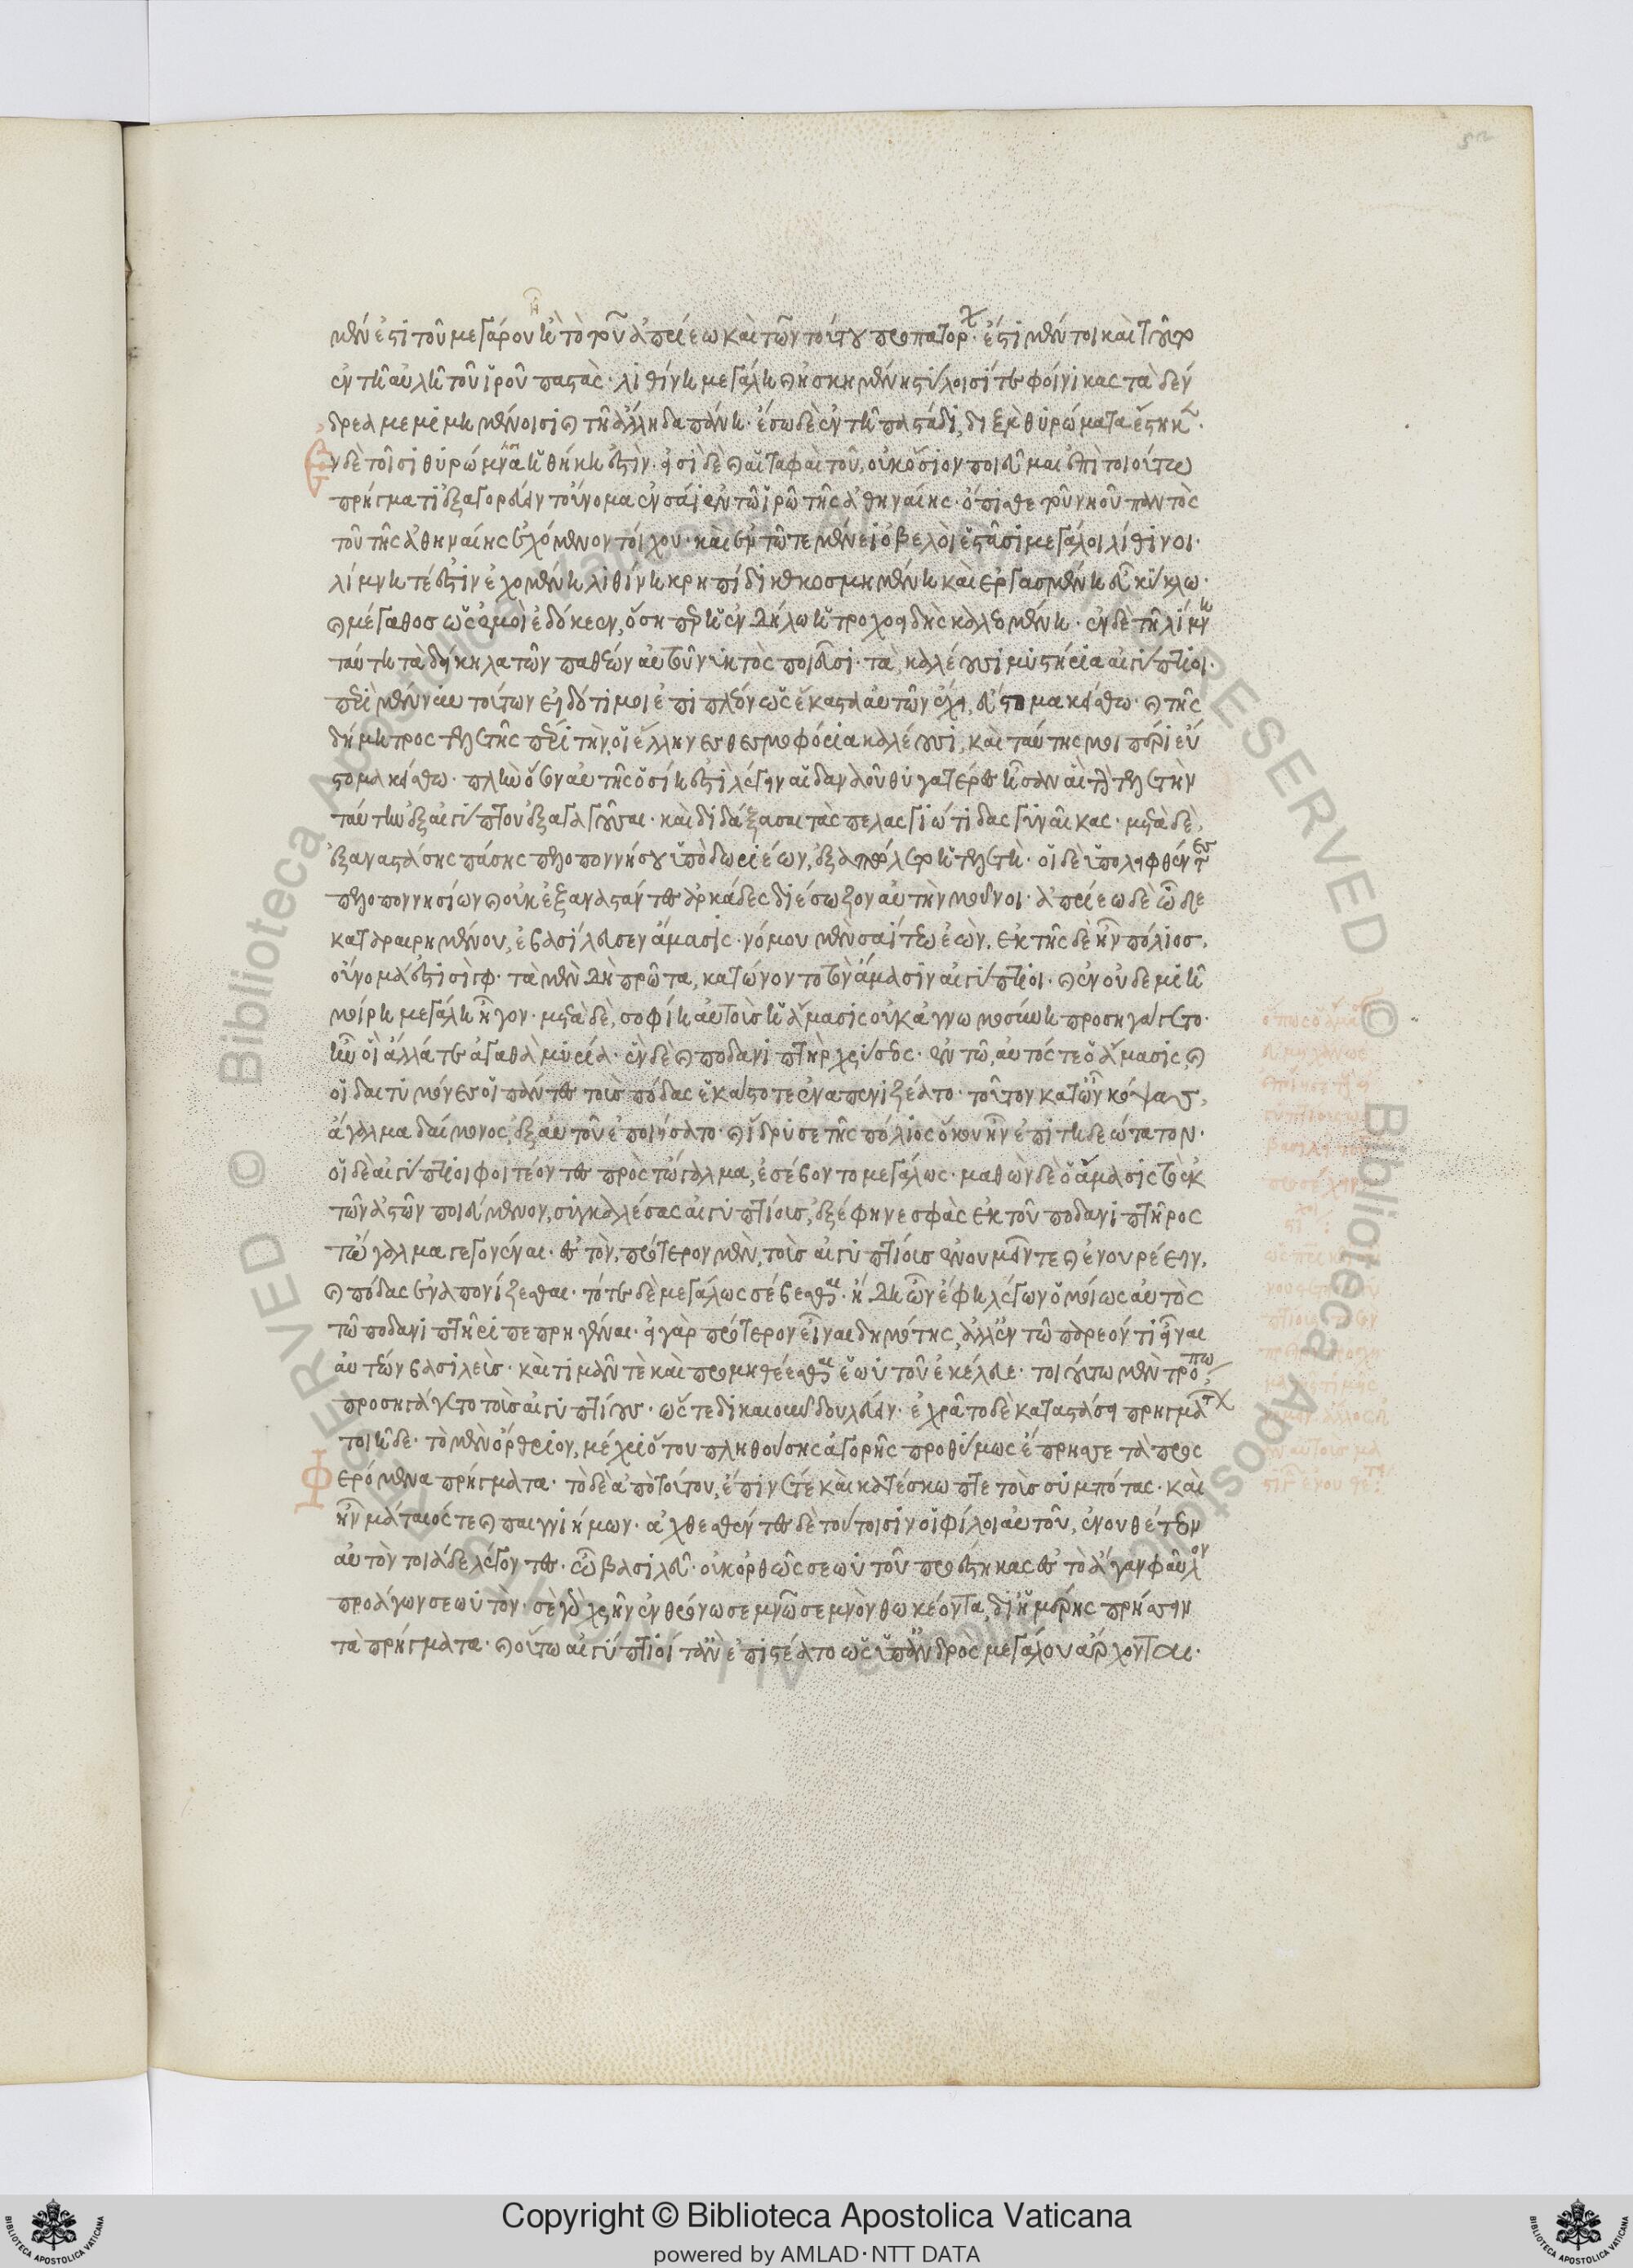 μέν ἐστι τοῦ μεγάρου ἢ τὸ τοῦ ἀπρίεω καὶ τῶν τούτου προπατόρων· ἔστι μέν τοι καὶ τοῦτο
ἐν τῆ αὐλῆ τοῦ ἱροῦ παστὰς· λιθίνη μεγάλη καὶ ἠσκημένη στύλοισί τε φοίνικας τὰ δέν
δρεα μεμιμημένοισι καὶ τῆ ἄλλη δαπάνη· ἔσω δὲ ἐν τῆ παστάδι, διξὰ θυρώματα ἕστηκεν·
ἐν δὲ τοῖσι θυρώμασι ἡ θήκη ἐστίν· εἰσὶ δὲ καὶ αἱ ταφαὶ τοῦ, οὐκ ὅσιον ποιεῦμαι ἐπὶ τοιούτω
πρήγματι ἐξαγορεύειν τοὔνομα ἐν σάι ἐν τῶ ἱρῶ τῆς ἀθηναίης· ὄπισθε τοῦ νηοῦ παντὸς
τοῦ τῆς ἀθηναίης ἐχόμενον τοίχου· καὶ ἐν τῶ τεμένει ὀβελοὶ ἑστᾶσι μεγάλοι λίθινοι·
λίμνη τέ ἐστιν ἐχομένη λιθίνη κρηπίδι κεκοσμημένη καὶ ἐργασμένη εὖ κύκλω·
καὶ μέγαθος ὡς ἐμοὶ ἐδόκεεν, ὅση περ ἡ ἐν Δήλω ἡ τροχοειδὴς καλεομένη· ἐν δὲ τῆ λίμνη
ταύτη τὰ δείκηλα τῶν παθέων αὐτοῦ νυκτὸς ποιεῦσι· τὰ, καλέουσι μυστήρια αἰγύπτιοι·
περὶ μέν νυν τούτων εἰδότι μοι ἐπὶ πλέον ὡς ἕκαστα αὐτῶν ἔχει, εὔστομα κείσθω· καὶ τῆς
δήμητρος τελετῆς πέρι τὴν, οἱ ἕλληνες θεσμοφόρια καλέουσι, καὶ ταύτης μοι πέρι εὔ
στομα κείσθω· πλὴν ὅσον αὐτῆς ὁσίη ἐστὶ λέγειν αἱ δαναοῦ θυγατέρες ἦσαν αἱ τὴν τελετὴν
ταύτην ἐξ αἰγύπτου ἐξαγαγοῦσαι· καὶ διδάξασαι τὰς πελασγιώτιδας γυναῖκας· μετὰ δὲ,
ἐξαναστάσης πάσης πελοποννήσου ὑπὸ δωριέων, ἐξαπώλετο ἡ τελετὴ· οἱ δὲ ὑπολειφθέντες
πελοποννησίων καὶ οὐκ ἐξαναστάντες ἀρκάδες διέσωζον αὐτὴν μοῦνοι· ἀπρίεω δὲ ὧδε
καταραιρημένου, ἐβασίλευσεν ἄμασις· νόμου μὲν σαίτεω ἐὼν, ἐκ τῆς δὲ ἦν πόλιος,
οὔνομά ἐστι σιούφ· τὰ μὲν δὴ πρῶτα, κατώνοντο τὸν ἄμασιν αἰγύπτιοι· καὶ ἐν οὐδεμιῆ
μοίρη μεγάλη ἦγον· μετὰ δὲ, σοφίη αὐτοὺς ἡ ἄμασις οὐκ ἀγνωμοσύνη προσηγάγετο·
ἦν οἱ ἄλλα τε ἀγαθὰ μυρία· ἐν δὲ καὶ ποδανιπτὴρ χρύσεος· ἐν τῶ, αὐτός τε ὁ ἄμασις, καὶ
οἱ δαιτυμόνες οἱ πάντες τοὺς πόδας ἑκάστοτε ἐναπενιζέατο· τοῦτον κατ ὦν κόψας,
ἄγαλμα δαίμονος ἐξ αὐτοῦ ἐποιήσατο· καὶ ἵδρυσε τῆς πόλιος ὅκου ἦν ἐπιτηδεώτατον·
οἱ δὲ αἰγύπτιοι φοιτέοντες πρὸς τὤγαλμα, ἐσέβοντο μεγάλως· μαθὼν δὲ ὁ ἄμασις τὸ ἐκ
τῶν ἀστῶν ποιεύμενον, συγκαλέσας αἰγυπτίους, ἐξέφηνε σφὰς ἐκ τοῦ ποδανιπτῆρος
τὤγαλμα γεγονέναι· ἐς τὸν, πρότερον μὲν, τοὺς αἰγυπτίους ἐνουμεῖν τε καὶ ἐνουρέειν,
καὶ πόδας ἐναπονίζεσθαι· τότε δὲ μεγάλως σέβεσθαι· ἤδη ὦν ἔφη λέγων ὁμοίως αὐτὸς
τῶ ποδανιπτῆρι πεπρηγέναι· εἰ γὰρ πρότερον εἶναι δημότης, ἀλλ ἐν τῶ παρεόντι εἶναι
αὐτέων βασιλεὺς· καὶ τιμᾶν τὲ καὶ προμηθέεσθαι ἑωυτοῦ ἐκέλευε· τοιούτω μὲν τρόπω
προσηγάγετο τοὺς αἰγυπτίους· ὥστε δικαιοῦν δουλεύειν· ἐχρᾶτο δὲ καταστάσει πρηγμάτων
τοιῆδε· τὸ μὲν ὄρθριον, μέχρι ὅτου πληθούσης ἀγορῆς προθύμως ἔπρησσε τὰ προς
φερόμενα πρήγματα· τὸ δὲ ἀπὸ τούτου, ἔπινέ τε καὶ κατέσκωπτε τοὺς συμπότας· καὶ
ἦν μάταιός τε καὶ παιγνιήμων· ἀχθεσθέντες δὲ τούτοισιν οἱ φίλοι αὐτοῦ, ἐνουθέτεον
αὐτὸν τοιάδε λέγοντες· ὦ βασιλεῦ· οὐκ ὀρθῶς σεωυτοῦ προέστηκας ἐς τὸ ἄγαν φαῦλον
προάγων σεωυτὸν· σὲ γὰρ χρῆν ἐν θρόνω σεμνῶ σεμνὸν θωκέοντα, δι ἡμέρης πρήσσειν
τὰ πρήγματα· καὶ οὕτω αἰγύπτιοί τ ἂν ἐπιστέατο ὡς ὑπ ἀνδρὸς μεγάλου ἄρχονται·
Copyright © Biblioteca Apostolica Vaticana
powered by AMLAD·NTT DATA